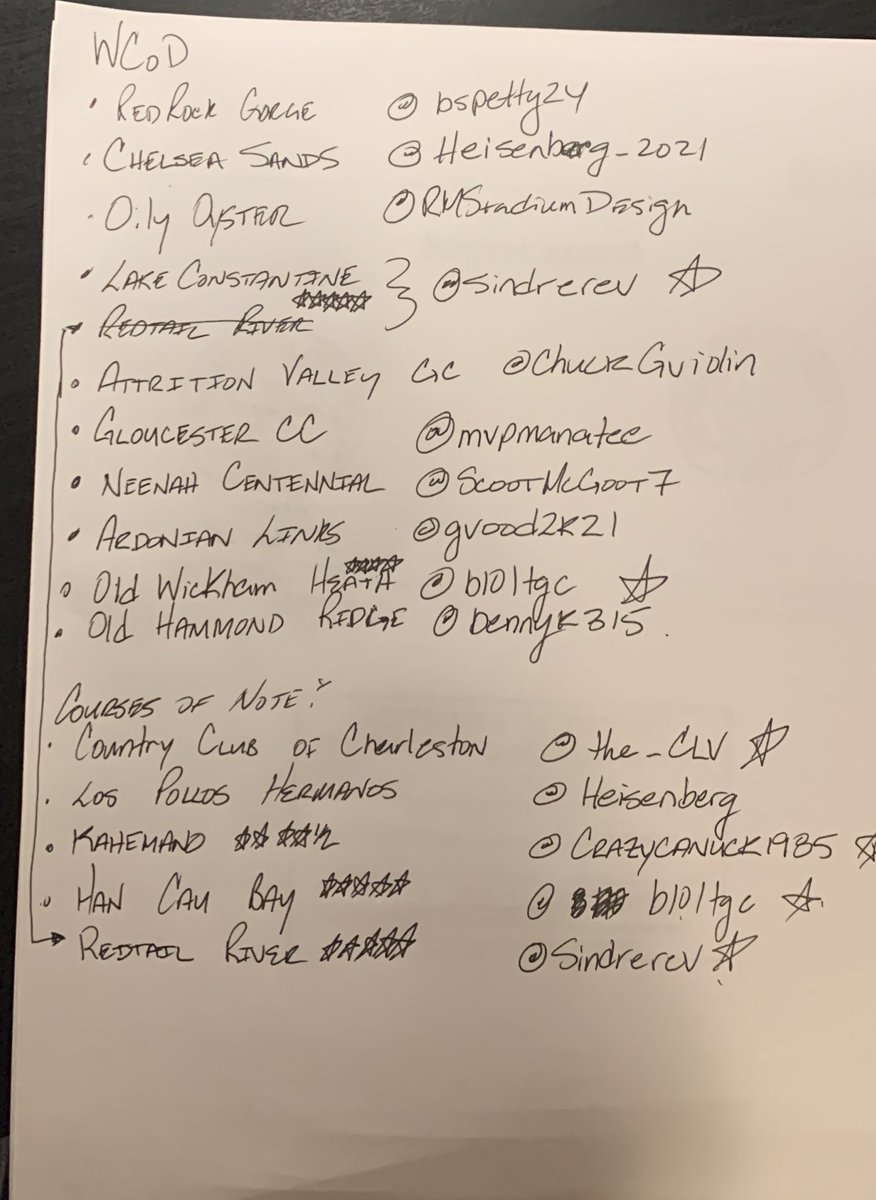 WCoD
• RedRock Gorge @bspetty24
• Chelsea Sands @Heisenberg_2021
• Oily Oyster @RMStadiumDesign
• Lake Constantine } @sindrerev ☆
★★★★★
• Redtail River
• Attrition Valley GC @ChuckGviolin
• Gloucester CC @mvpmanatee
• Neenah Centennial @ScootMcGoot7
• Ardonian Links @gvood2k21
★★★★
• Old Wickham Heath @b101tgc ☆
• Old Hammond Ridge @bennyk315.
Courses of Note:
• Country Club of Charleston @the_CLV ☆
• Los Pollos Hermanos @Heisenberg
• Kahemano ★★★★½ @CrazyCanuck1985 ☆
• Han Cau Bay ★★★★★ @b101tgc ☆
Redtail River ★★★★★ @Sindrerev ☆